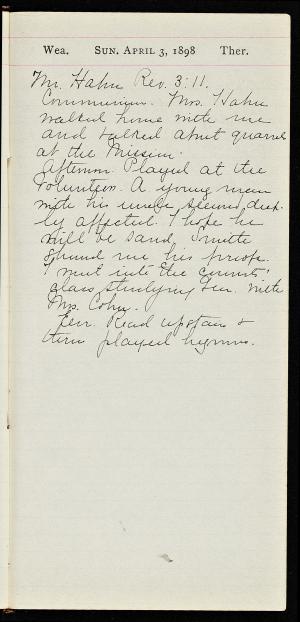 Wea. SUN. APRIL 3, 1898 Ther.
Mr. Hahn Rev. 3:11.
Communion. Mrs. Hahn
walked home with me
and talked about quarrel
at the Mission.
Afternoon. Played at the
Volunteers. A young man
with his uncle seemed deep-
ly affected. I hope he
will be saved. Smith
showed me his proofs.
I went into the convicts'
class studying Gen. with
Mrs. Cohn.
Eve. Read upstairs &
then played hymns.